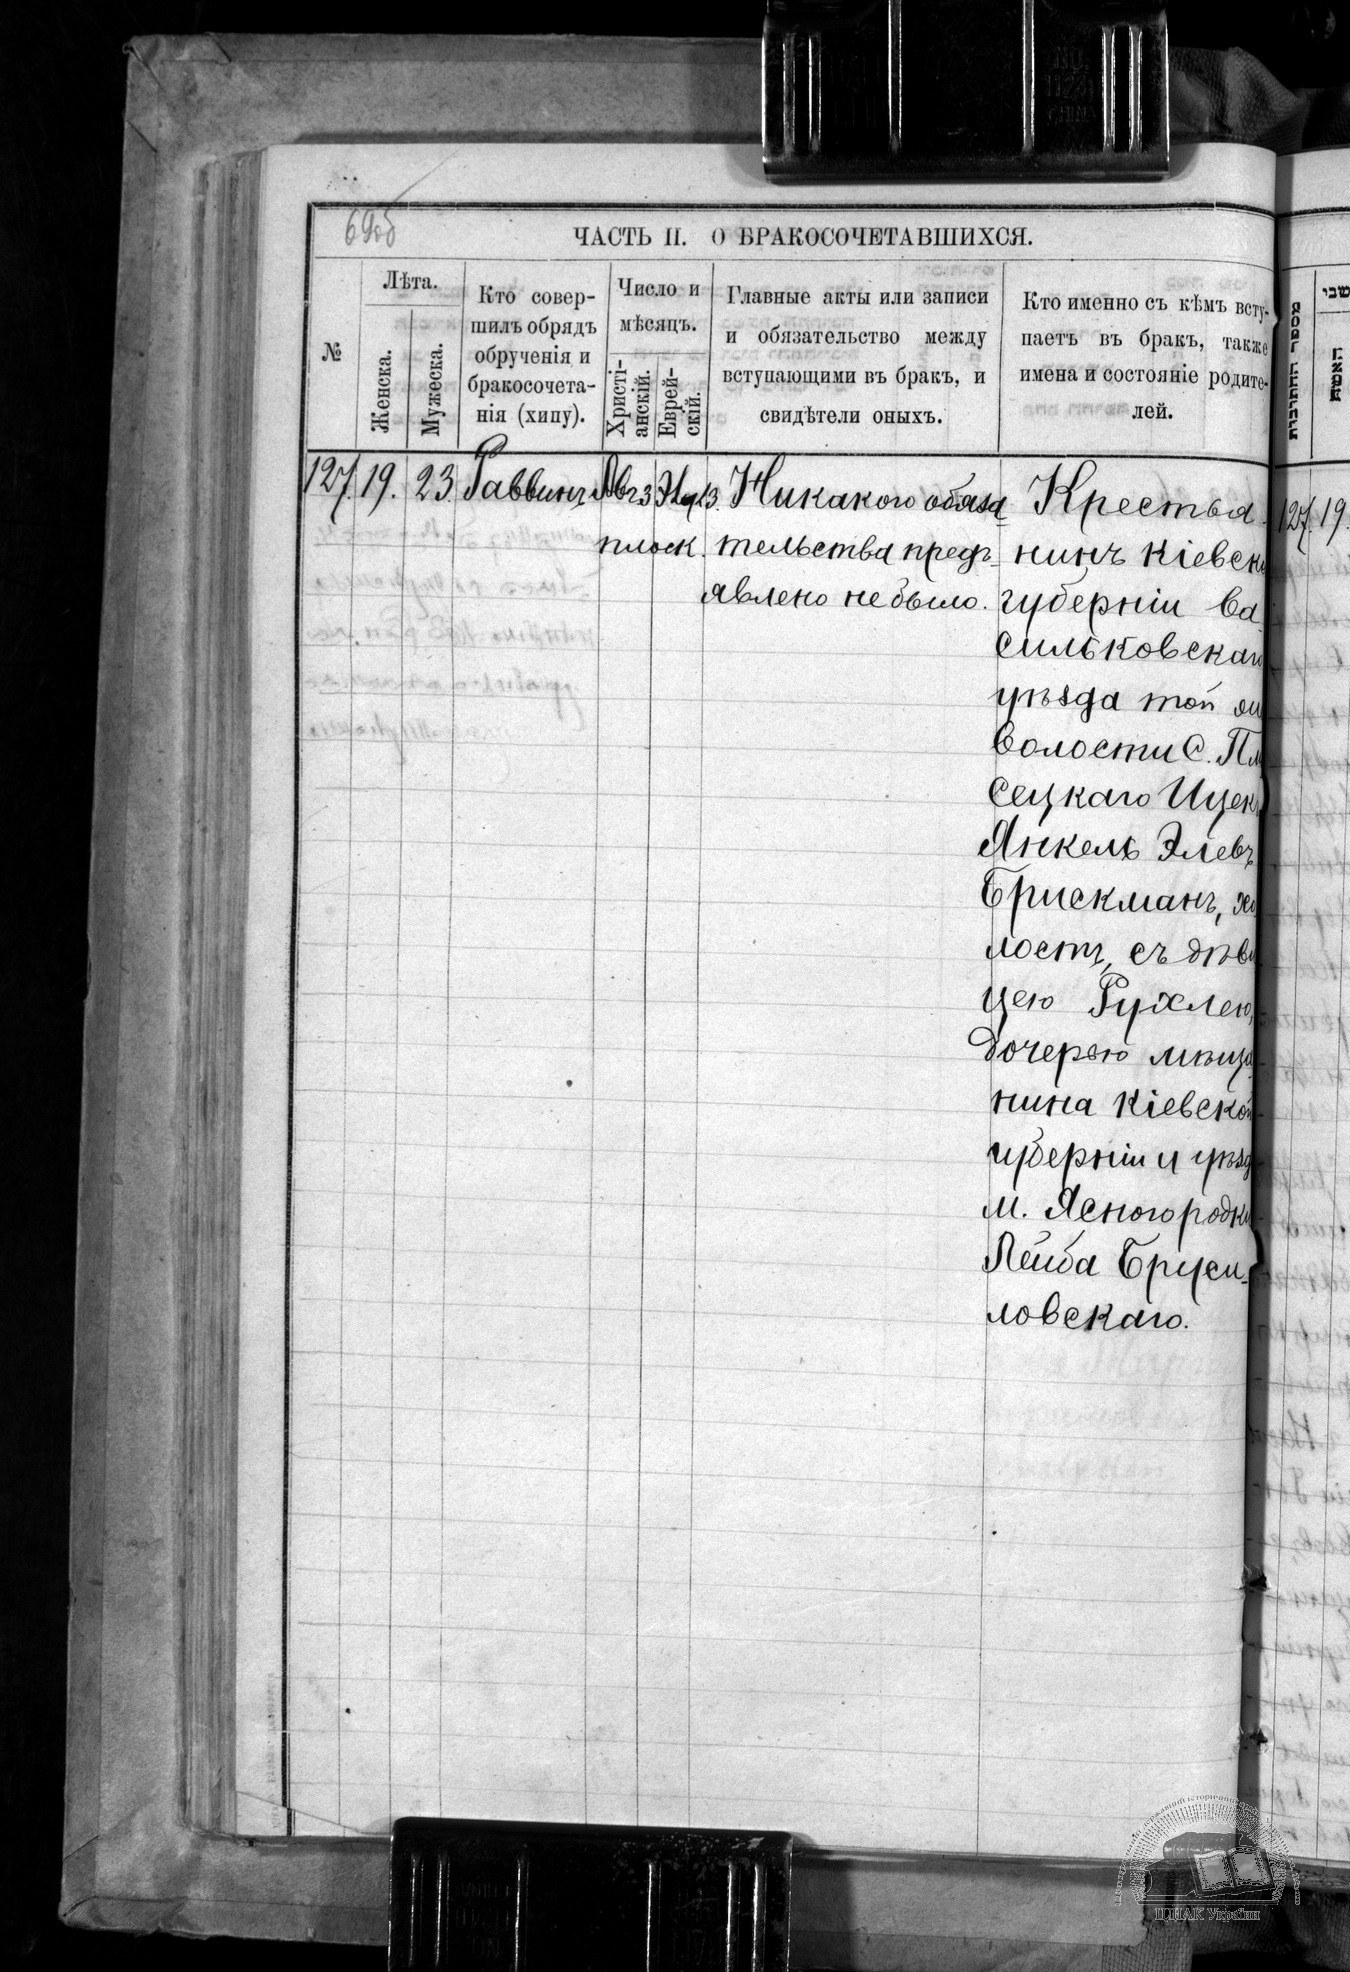 69об
ЧАСТЬ II. О БРАКОСОЧЕТАВШИХСЯ.
№
Лѣта.
Женска.
Мужеска.
Кто совер-
шилъ обрядъ
обрученія и
бракосочета-
нія (хипу).
Число и
мѣсяцъ.
Христі-
анскій.
Еврей-
скій.
Главные акты или записи
и обязательство между
вступающими въ бракъ, и
свидѣтели оныхъ.
Кто именно съ кѣмъ всту-
паетъ въ бракъ, также
имена и состояніе родите-
лей.
127. 19. 23. Раввинъ
Никакого обяза
тельства предъ
явлено не было.
Крестья
нинъ Кіевск
губерніи Ва
сильковскаго
уѣзда той
волости С. Пл
сецкаго Ицек
Янкель Элевъ
Брискманъ, хо
лостъ, съ дѣви
цею Рухлею,
дочерью мѣща
нина Кіевской
губерніи и уѣзд
м. Ясногородки
Лейба Бруси
ловскаго.
127. 19.
ЦДІАК України